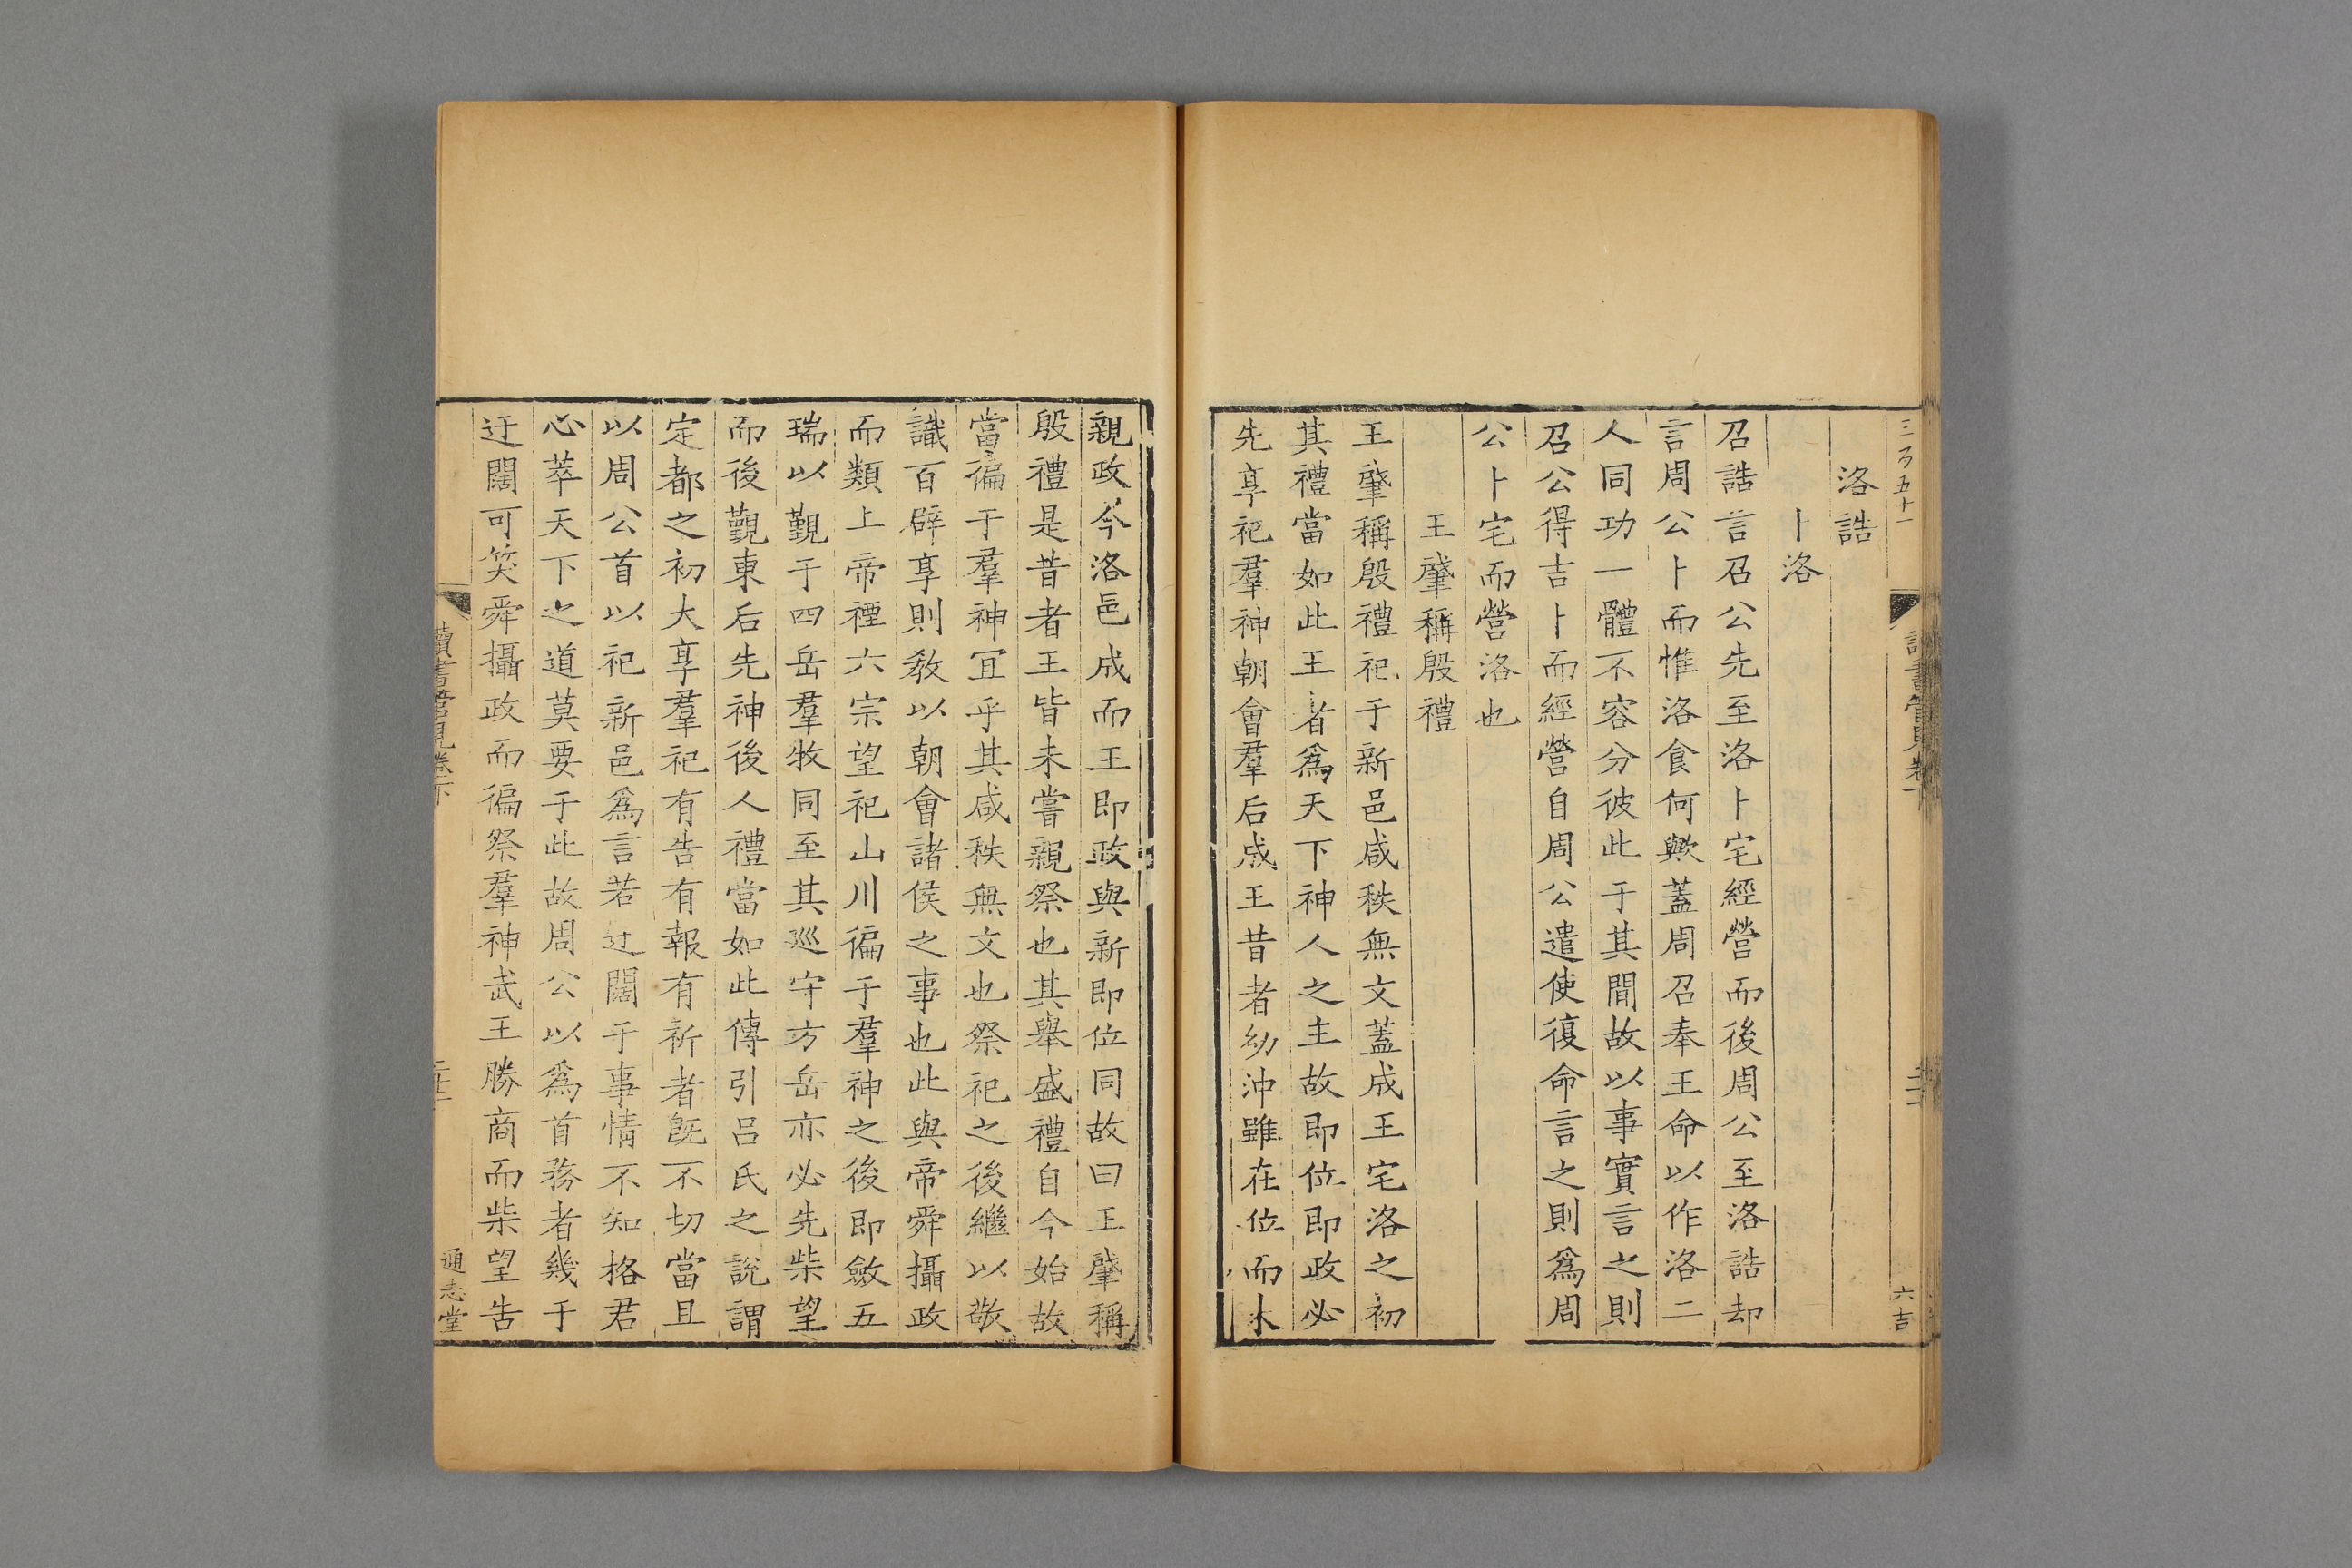 洛誥
卜洛
召誥言召公先至洛卜宅經營而後周公至洛誥却
言周公卜而惟洛食何歟蓋周召奉王命以作洛二
人同功一體不容分彼此于其間故以事實言之則
召公得吉卜而經營自周公遣使復命言之則爲周
公卜宅而營洛也
王肇稱殷禮
王肇稱殷禮祀于新邑咸秩無文蓋成王宅洛之初
其禮當如此王者爲天下神人之主故即位即政必
先享祀羣神朝會羣后成王昔者幼沖雖在位而未
親政今洛邑成而王即政與新即位同故曰王肇稱
殷禮是昔者王皆未嘗親祭也其舉盛禮自今始故
當徧于羣神宜乎其咸秩無文也祭祀之後繼以敬
識百辟享則教以朝會諸侯之事也此與帝舜攝政
而類上帝禋六宗望祀山川徧于羣神之後即斂五
瑞以覲于四岳羣牧同至其巡守方岳亦必先柴望
而後覲東后先神後人禮當如此傳引呂氏之說謂
定都之初大享羣祀有告有報有祈者旣不切當且
以周公首以祀新邑爲言若迂闊于事情不知格君
心萃天下之道莫要于此故周公以爲首務者幾于
迂闊可笑舜攝政而徧祭羣神武王勝商而柴望告
讀書管見卷下
通志堂